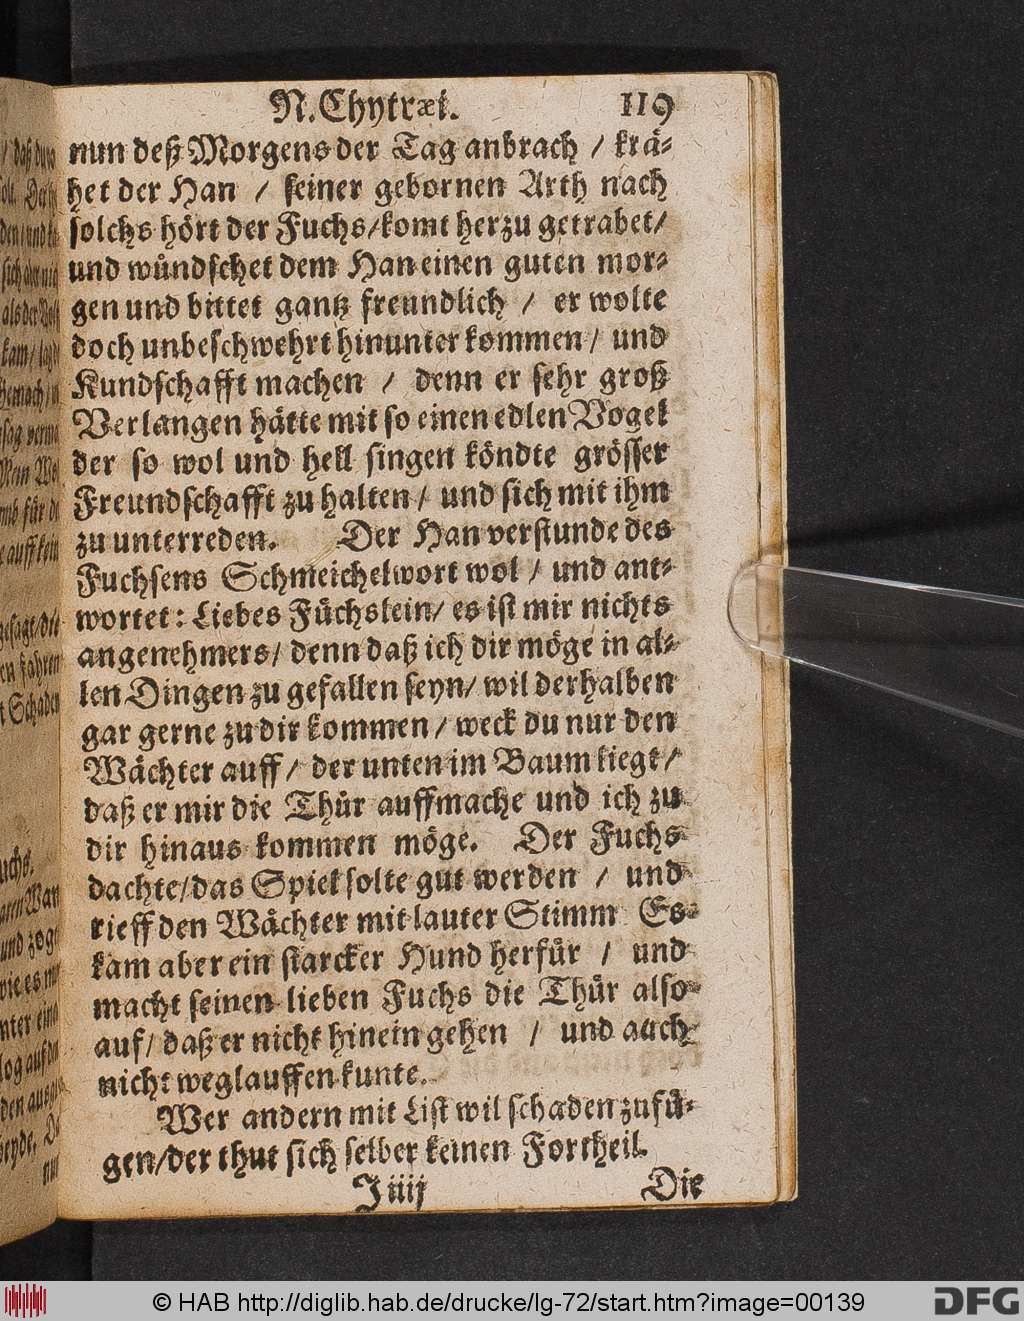 N. Chytræi. 119
nun deß Morgens der Tag anbrach / krä-
het der Han / seiner gebornen Arth nach
solchs hört der Fuchs / komt herzu getrabet /
und wündschet dem Han einen guten mor-
gen und bittet gantz freundlich / er wolte
doch unbeschwehrt hinunter kommen / und
Kundschafft machen / denn er sehr groß
Verlangen hätte mit so einen edlen Vogel
der so wol und hell singen köndte grösser
Freundschafft zu halten / und sich mit ihm
zu unterreden. Der Han verstunde des
Fuchsens Schmeichelwort wol / und ant-
wortet: Liebes Füchslein / es ist mir nichts
angenehmers / denn daß ich dir möge in al-
len Dingen zu gefallen seyn / wil derhalben
gar gerne zu dir kommen / weck du nur den
Wächter auff / der unten im Baum liegt /
daß er mir die Thür auffmache und ich zu
dir hinaus kommen möge. Der Fuchs
dachte / das Spiel solte gut werden / und
rieff den Wächter mit lauter Stimm Es
kam aber ein starcker Hund herfür / und
macht seinen lieben Fuchs die Thür also
auf / daß er nicht hinein gehen / und auch
nicht weglauffen kunte.
Wer andern mit List wil schaden zufü-
gen / der thut sich selber keinen Fortheil.
J iiij Die
© HAB http://diglib.hab.de/drucke/lg-72/start.htm?image=00139
DFG